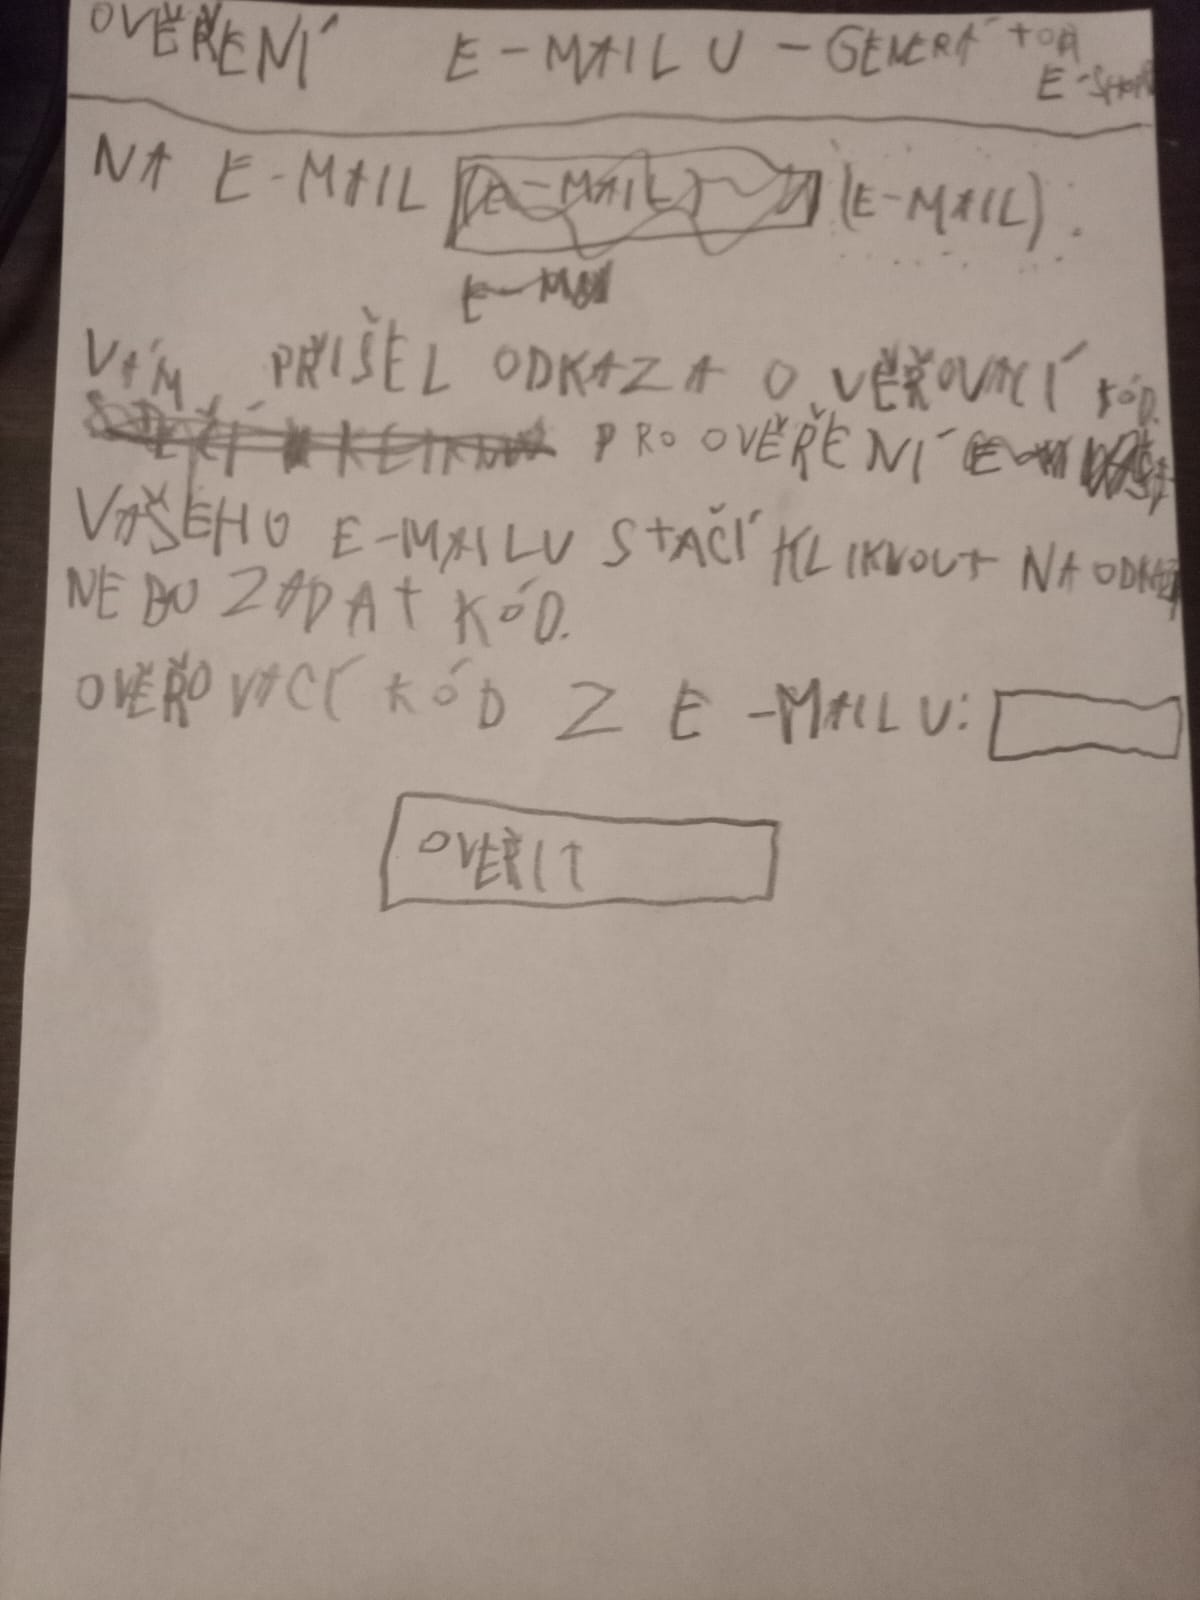 OVĚŘENÍ E-MAILU - GENERÁTOR
E-SHOPŮ
NA E-MAIL (E-MAIL) (E-MAIL).
VÁM PŘIŠEL ODKAZ A OVĚŘOVACÍ KÓD.
PRO OVĚŘENÍ
VAŠEHO E-MAILU STAČÍ KLIKNOUT NA ODKAZ
NEBO ZADAT KÓD.
OVĚŘOVACÍ KÓD Z E-MAILU:
OVĚŘIT